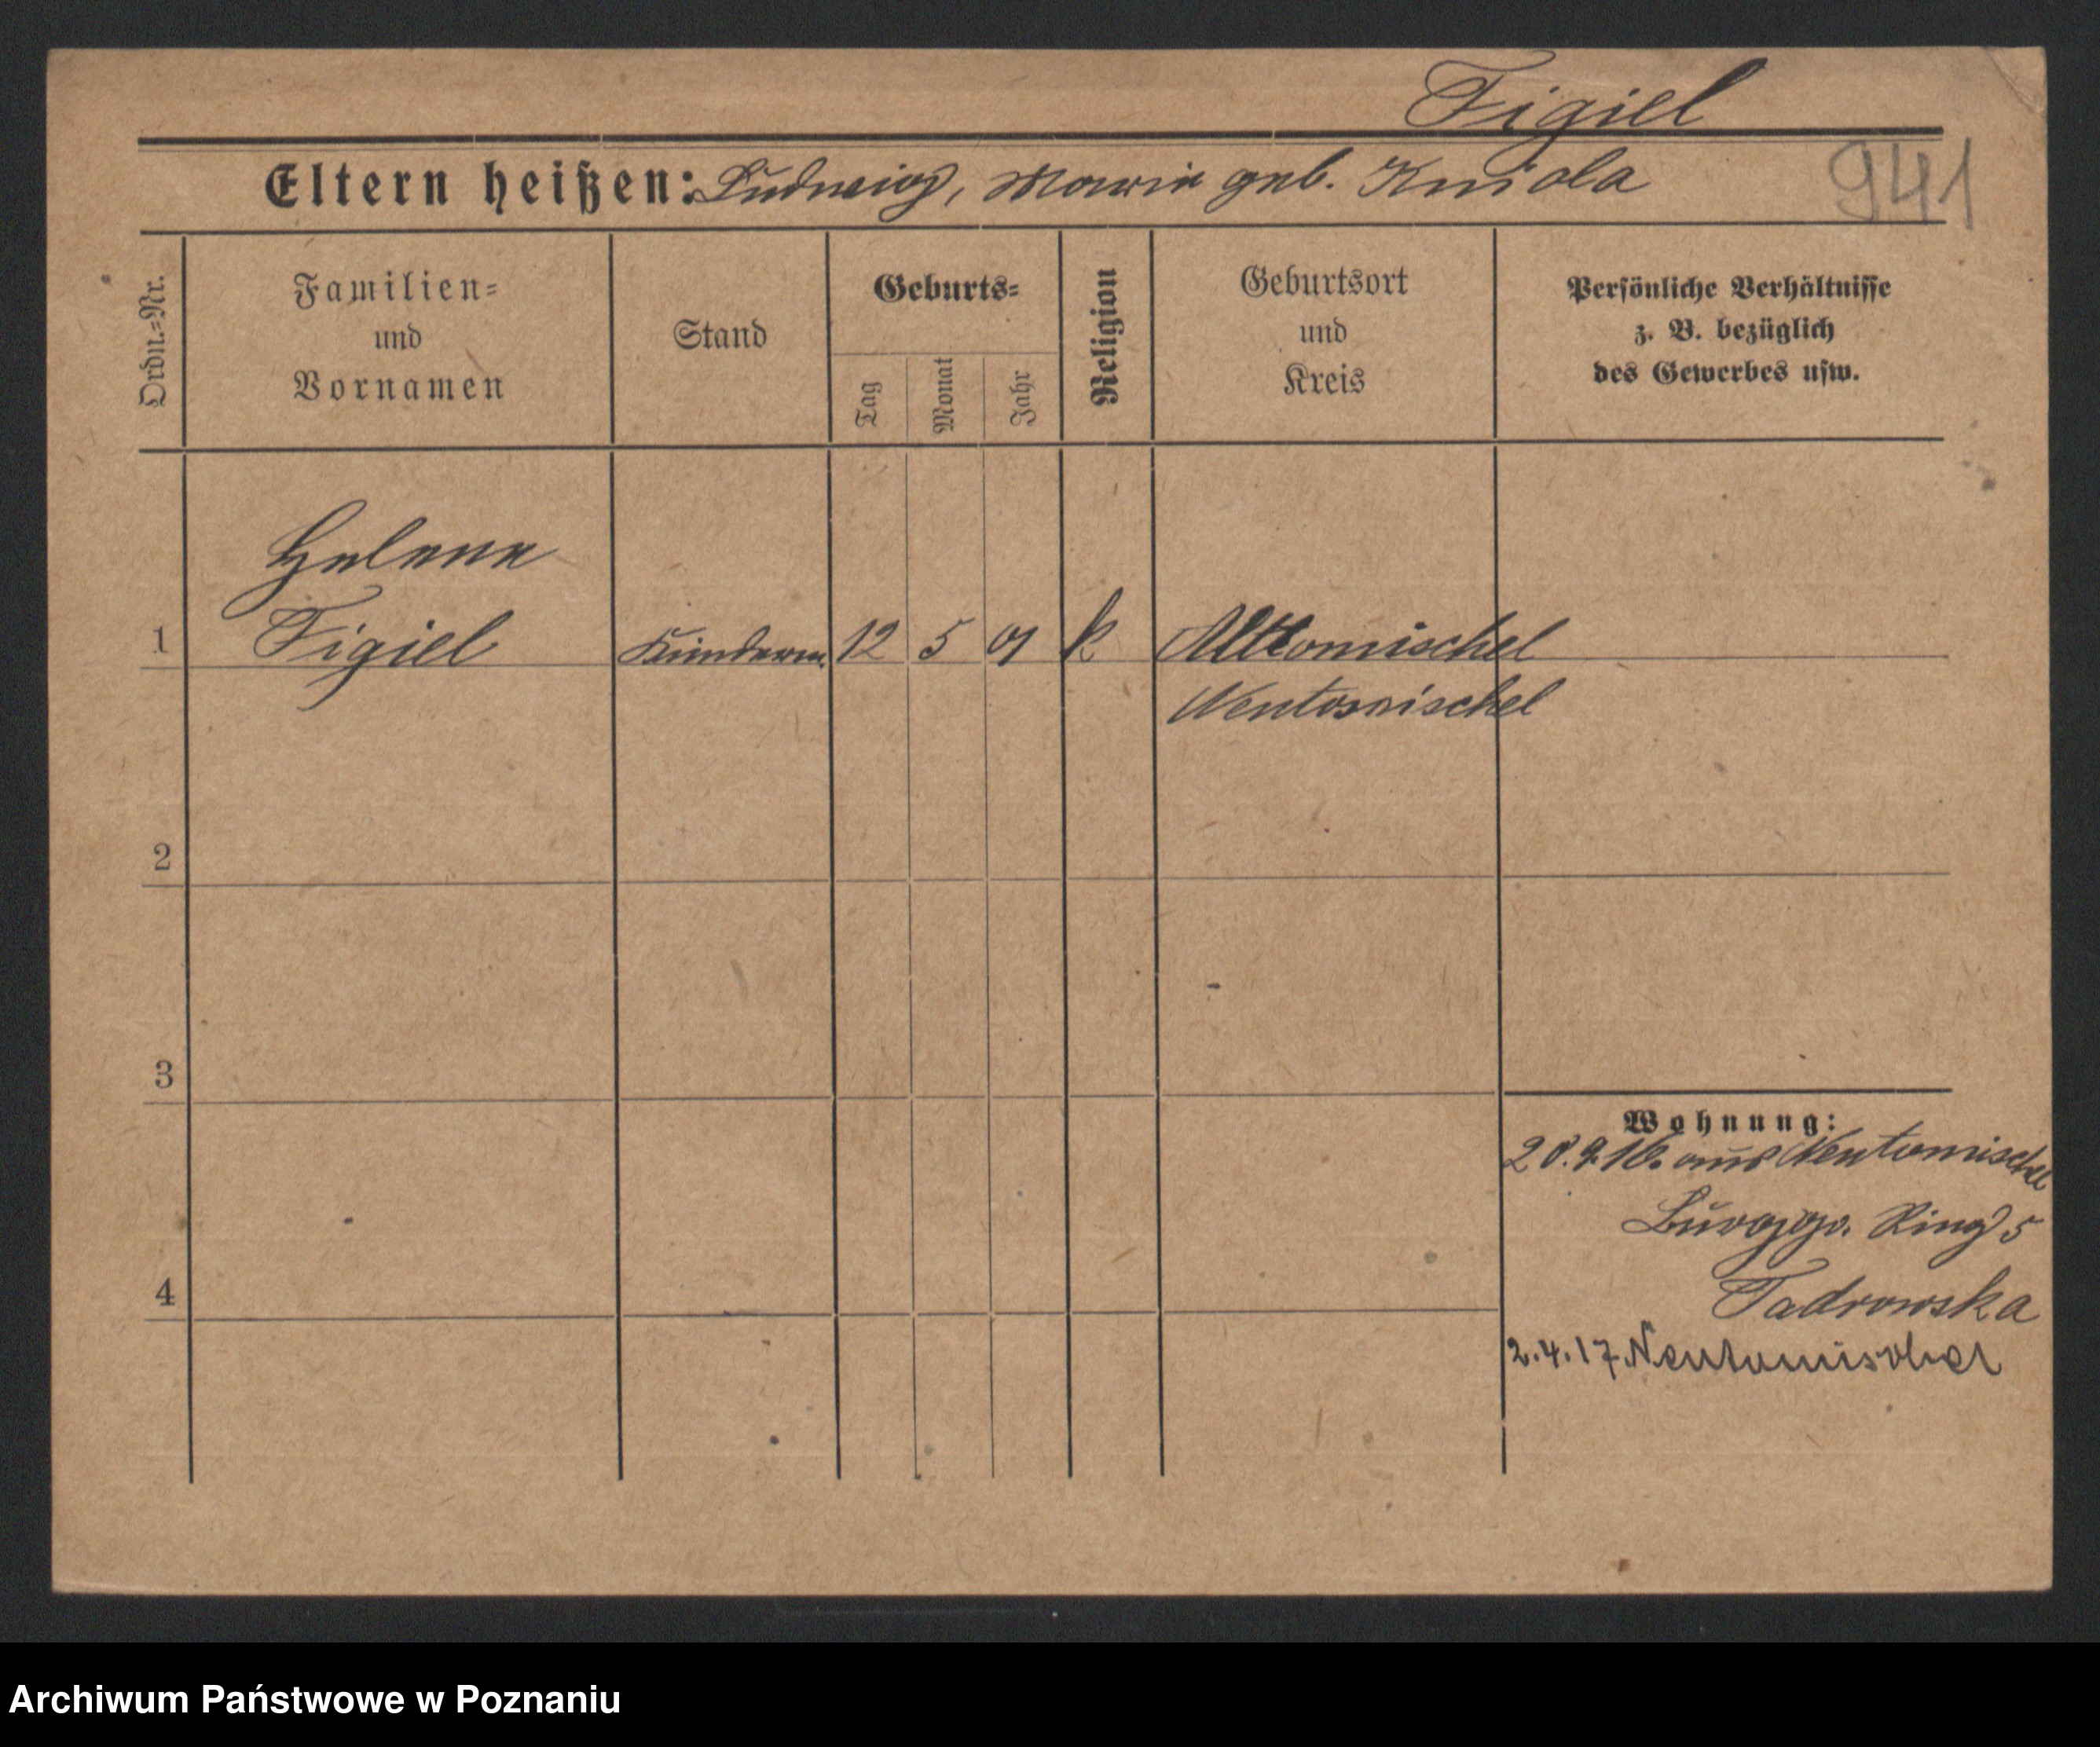 Figiel
Eltern heißen: Ludwig, Maria geb. Kniola
941
Ordn.=Nr.
Familien=
und
Vornamen
Stand
Geburts=
Tag
Monat
Jahr
Religion
Geburtsort
und
Kreis
Persönliche Verhältnisse
z. B. bezüglich
des Gewerbes usw.
Helena
1 Figiel Kinderm. 12 5 01 k Alttomischel
Neutomischel
2
3
Wohnung:
20.9.16. aus Neutomischel
Ring 5
4 Tadrowska
2.4.17 Neutomischel
Archiwum Państwowe w Poznaniu